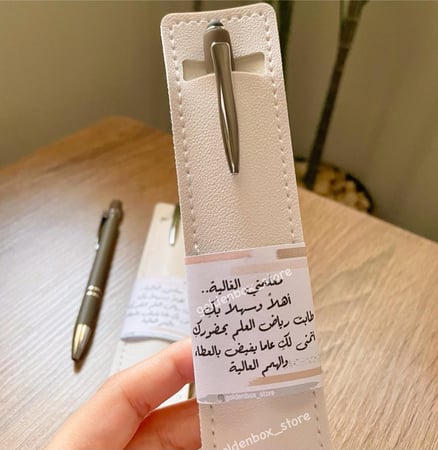 معلمتي الغالية..
أهلاً وسهلاً بكِ
طابت رياض العلم بحضوركِ
أتمنى لكِ عاما يفيض بالعطاء
والهمم العالية
goldenbox_store
@goldenbox_store
goldenbox_store
goldenbox_store